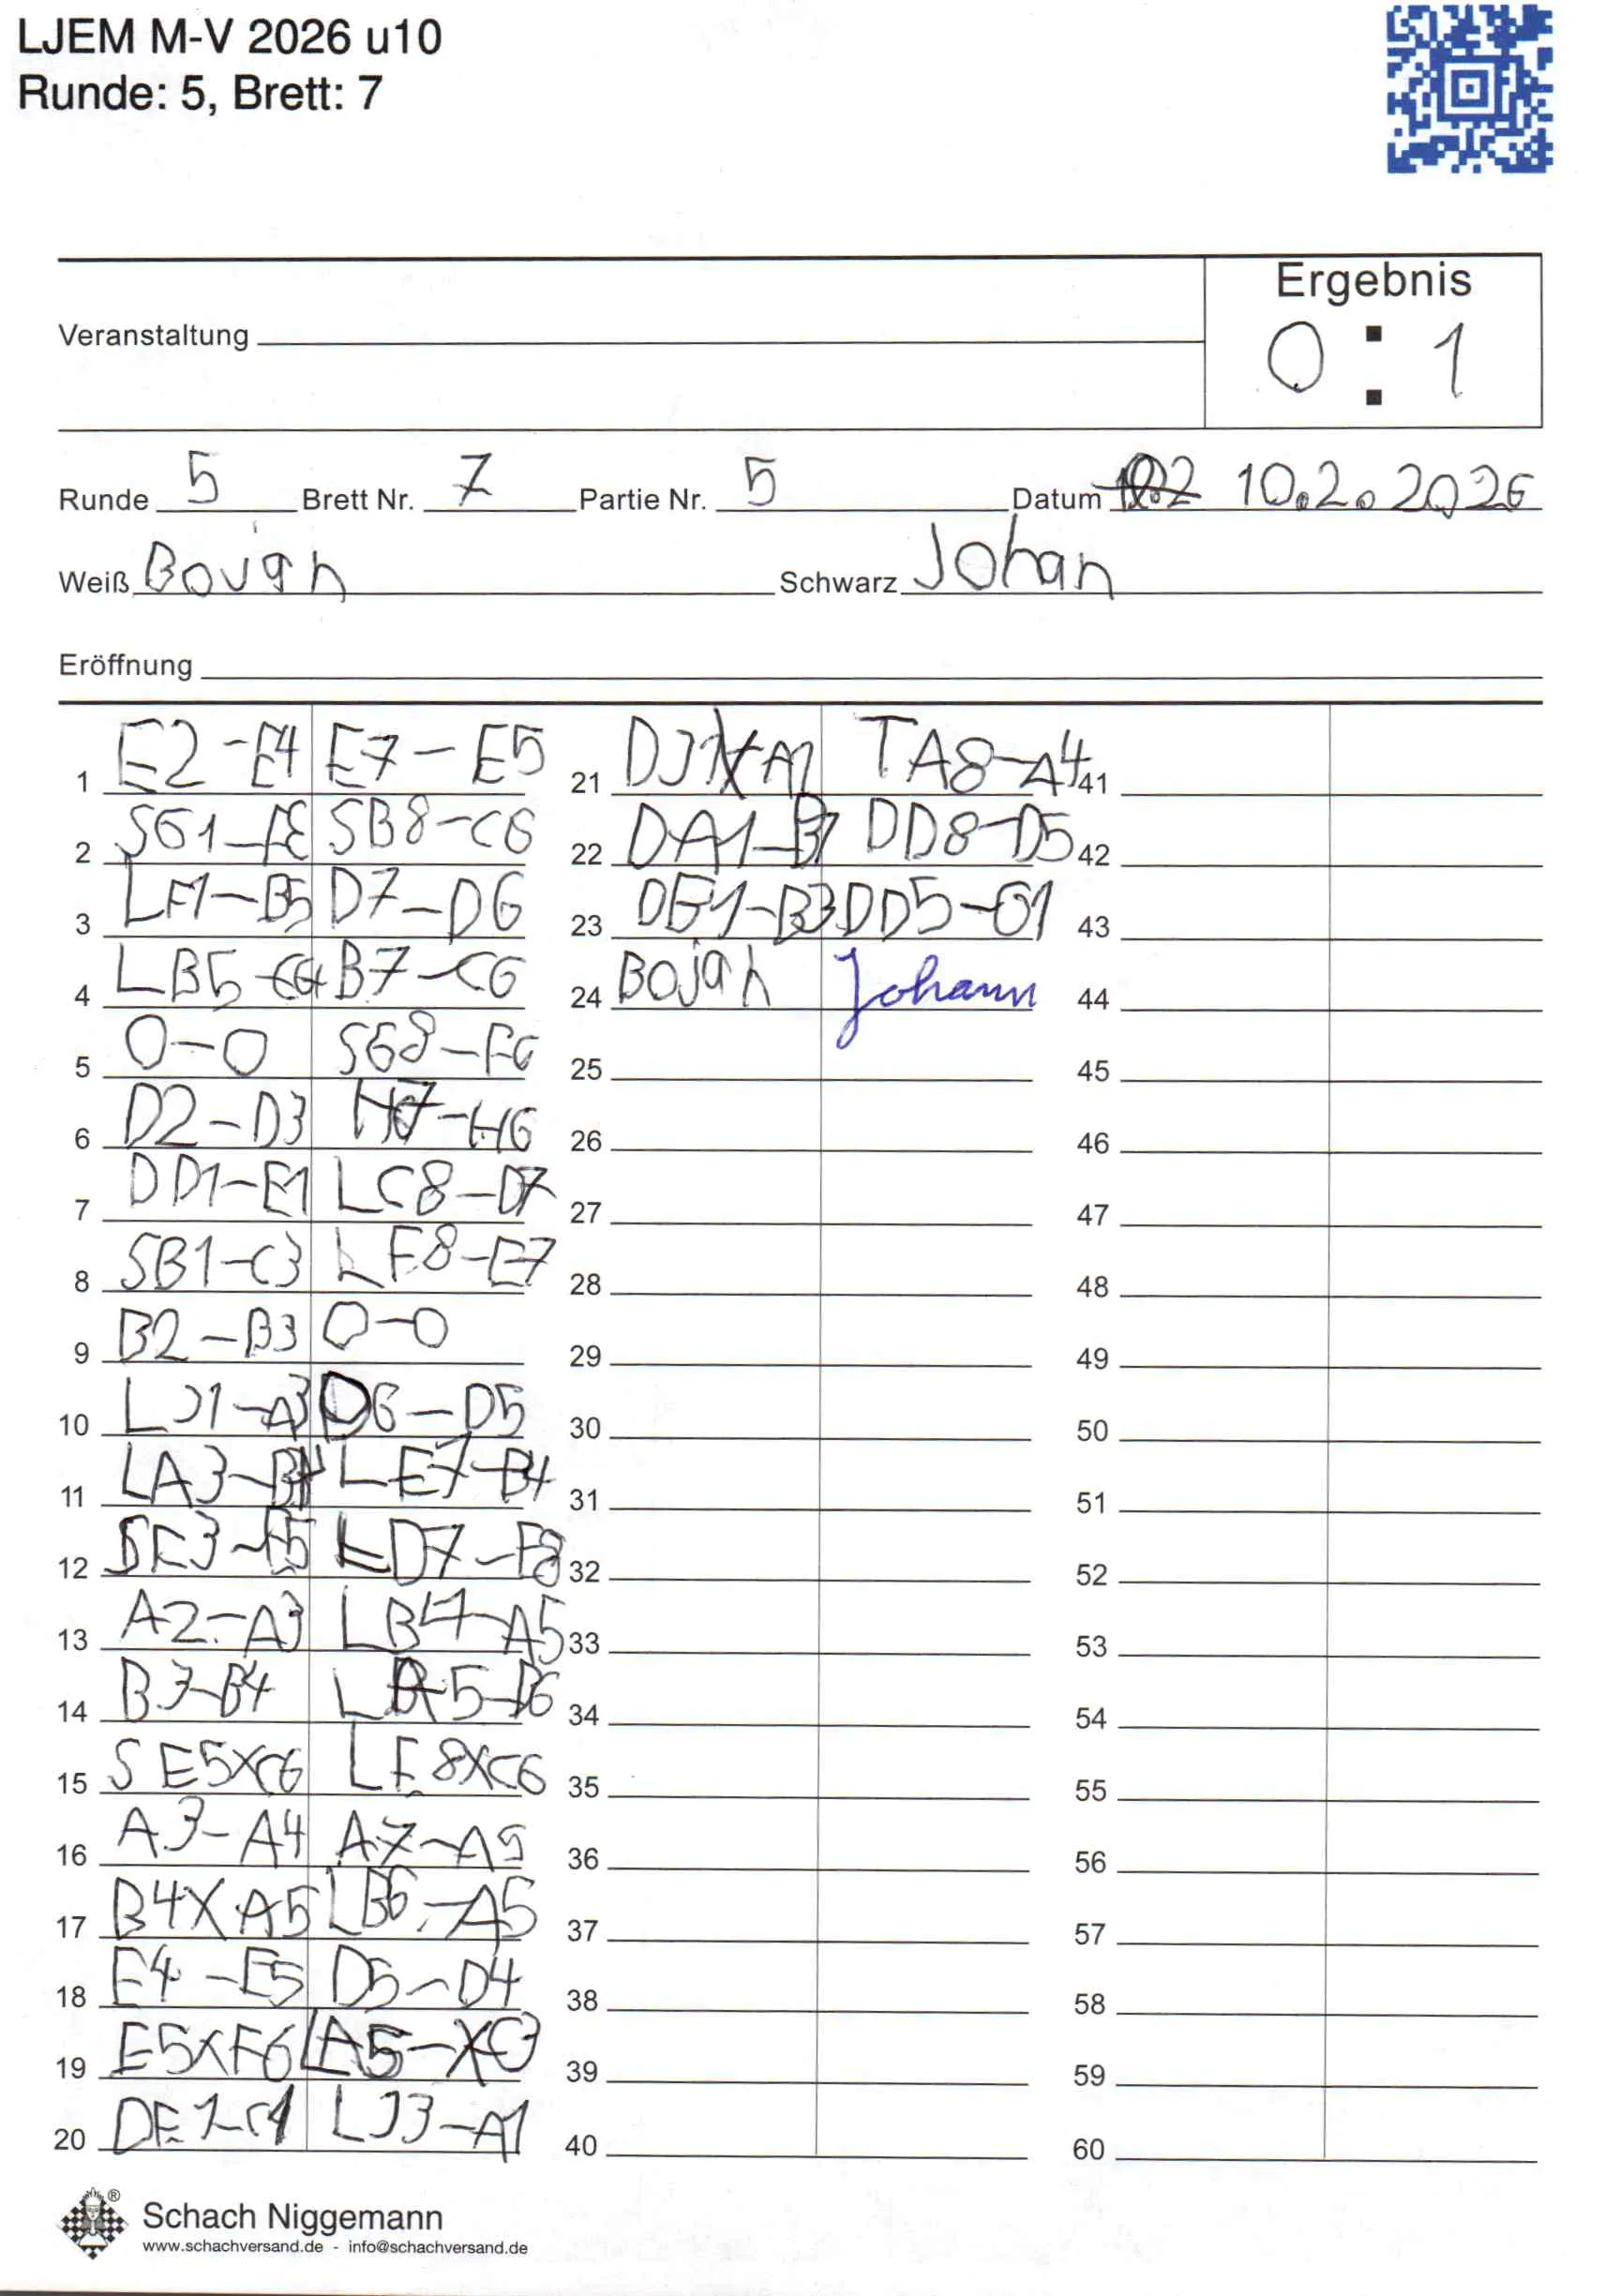 LJEM M-V 2026 u10
Runde: 5, Brett: 7
Ergebnis
0 : 1
Veranstaltung
Runde 5 Brett Nr. 7 Partie Nr. 5 Datum 10.2.2026
Weiß Bojan Schwarz Johan
Eröffnung
1 E2-E4 E7-E5
2 SG1- SB8-C6
3 LF1-B5 D7-D6
4 LB5- B7-C6
5 0-0 SG8-F6
6 D2-D3 H7-H6
7 DD1-E1 LC8-D7
8 SB1-C3 LF8-E7
9 B2-B3 0-0
10 LJ1-A3 D6-D5
11 LA3- LE7-B4
12 LD7-E8
13 A2-A3 LB4-A5
14 B3-B4 LA5-B6
15 SE5XC6 LE8XC6
16 A3-A4 A7-A5
17 B4XA5 LB6-A5
18 E4-E5 D5-D4
19 E5XF6 LA5-XC3
20 LJ3-A1
21 TA8-A4
22 DA1-B1 DD8-D5
23 DD5-G1
24 Bojan Johann
25
26
27
28
29
30
31
32
33
34
35
36
37
38
39
40
41
42
43
44
45
46
47
48
49
50
51
52
53
54
55
56
57
58
59
60
®
Schach Niggemann
www.schachversand.de - info@schachversand.de